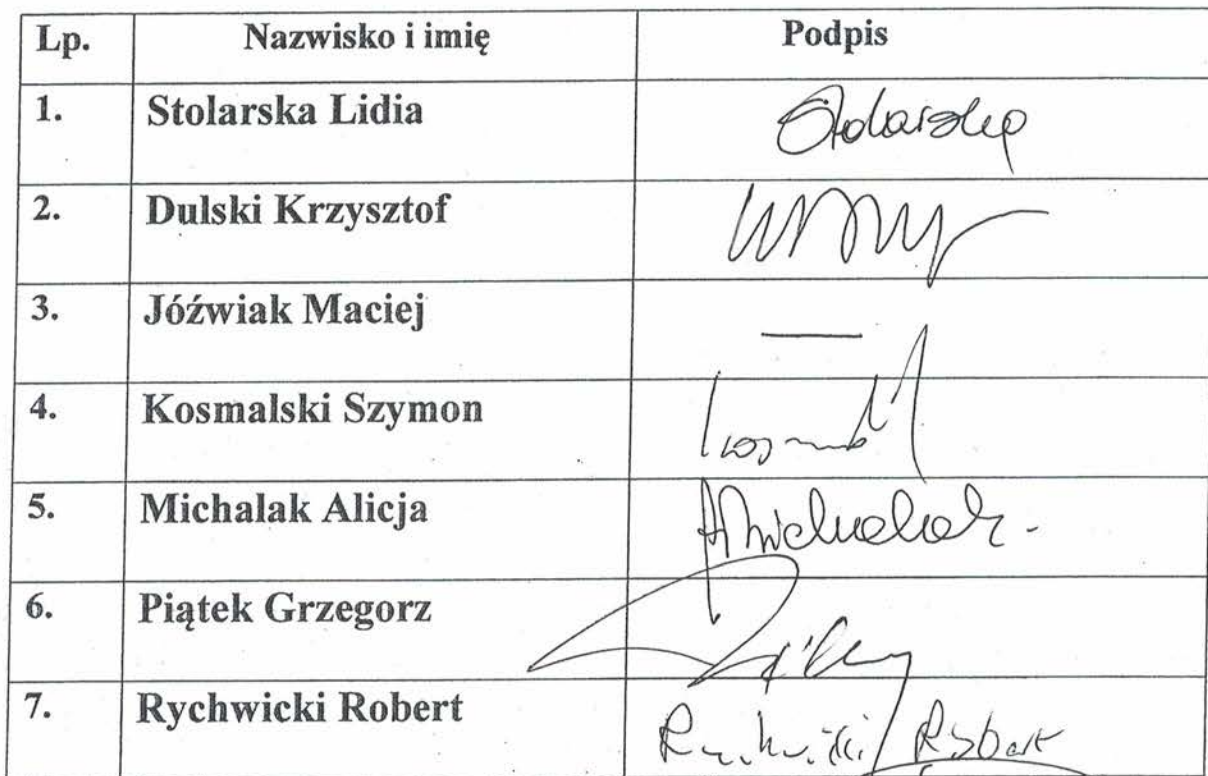 Lp. Nazwisko i imię Podpis
1. Stolarska Lidia Stolarska
2. Dulski Krzysztof
3. Jóźwiak Maciej —
4. Kosmalski Szymon
5. Michalak Alicja AMichalak
6. Piątek Grzegorz
7. Rychwicki Robert Rychwicki Robert